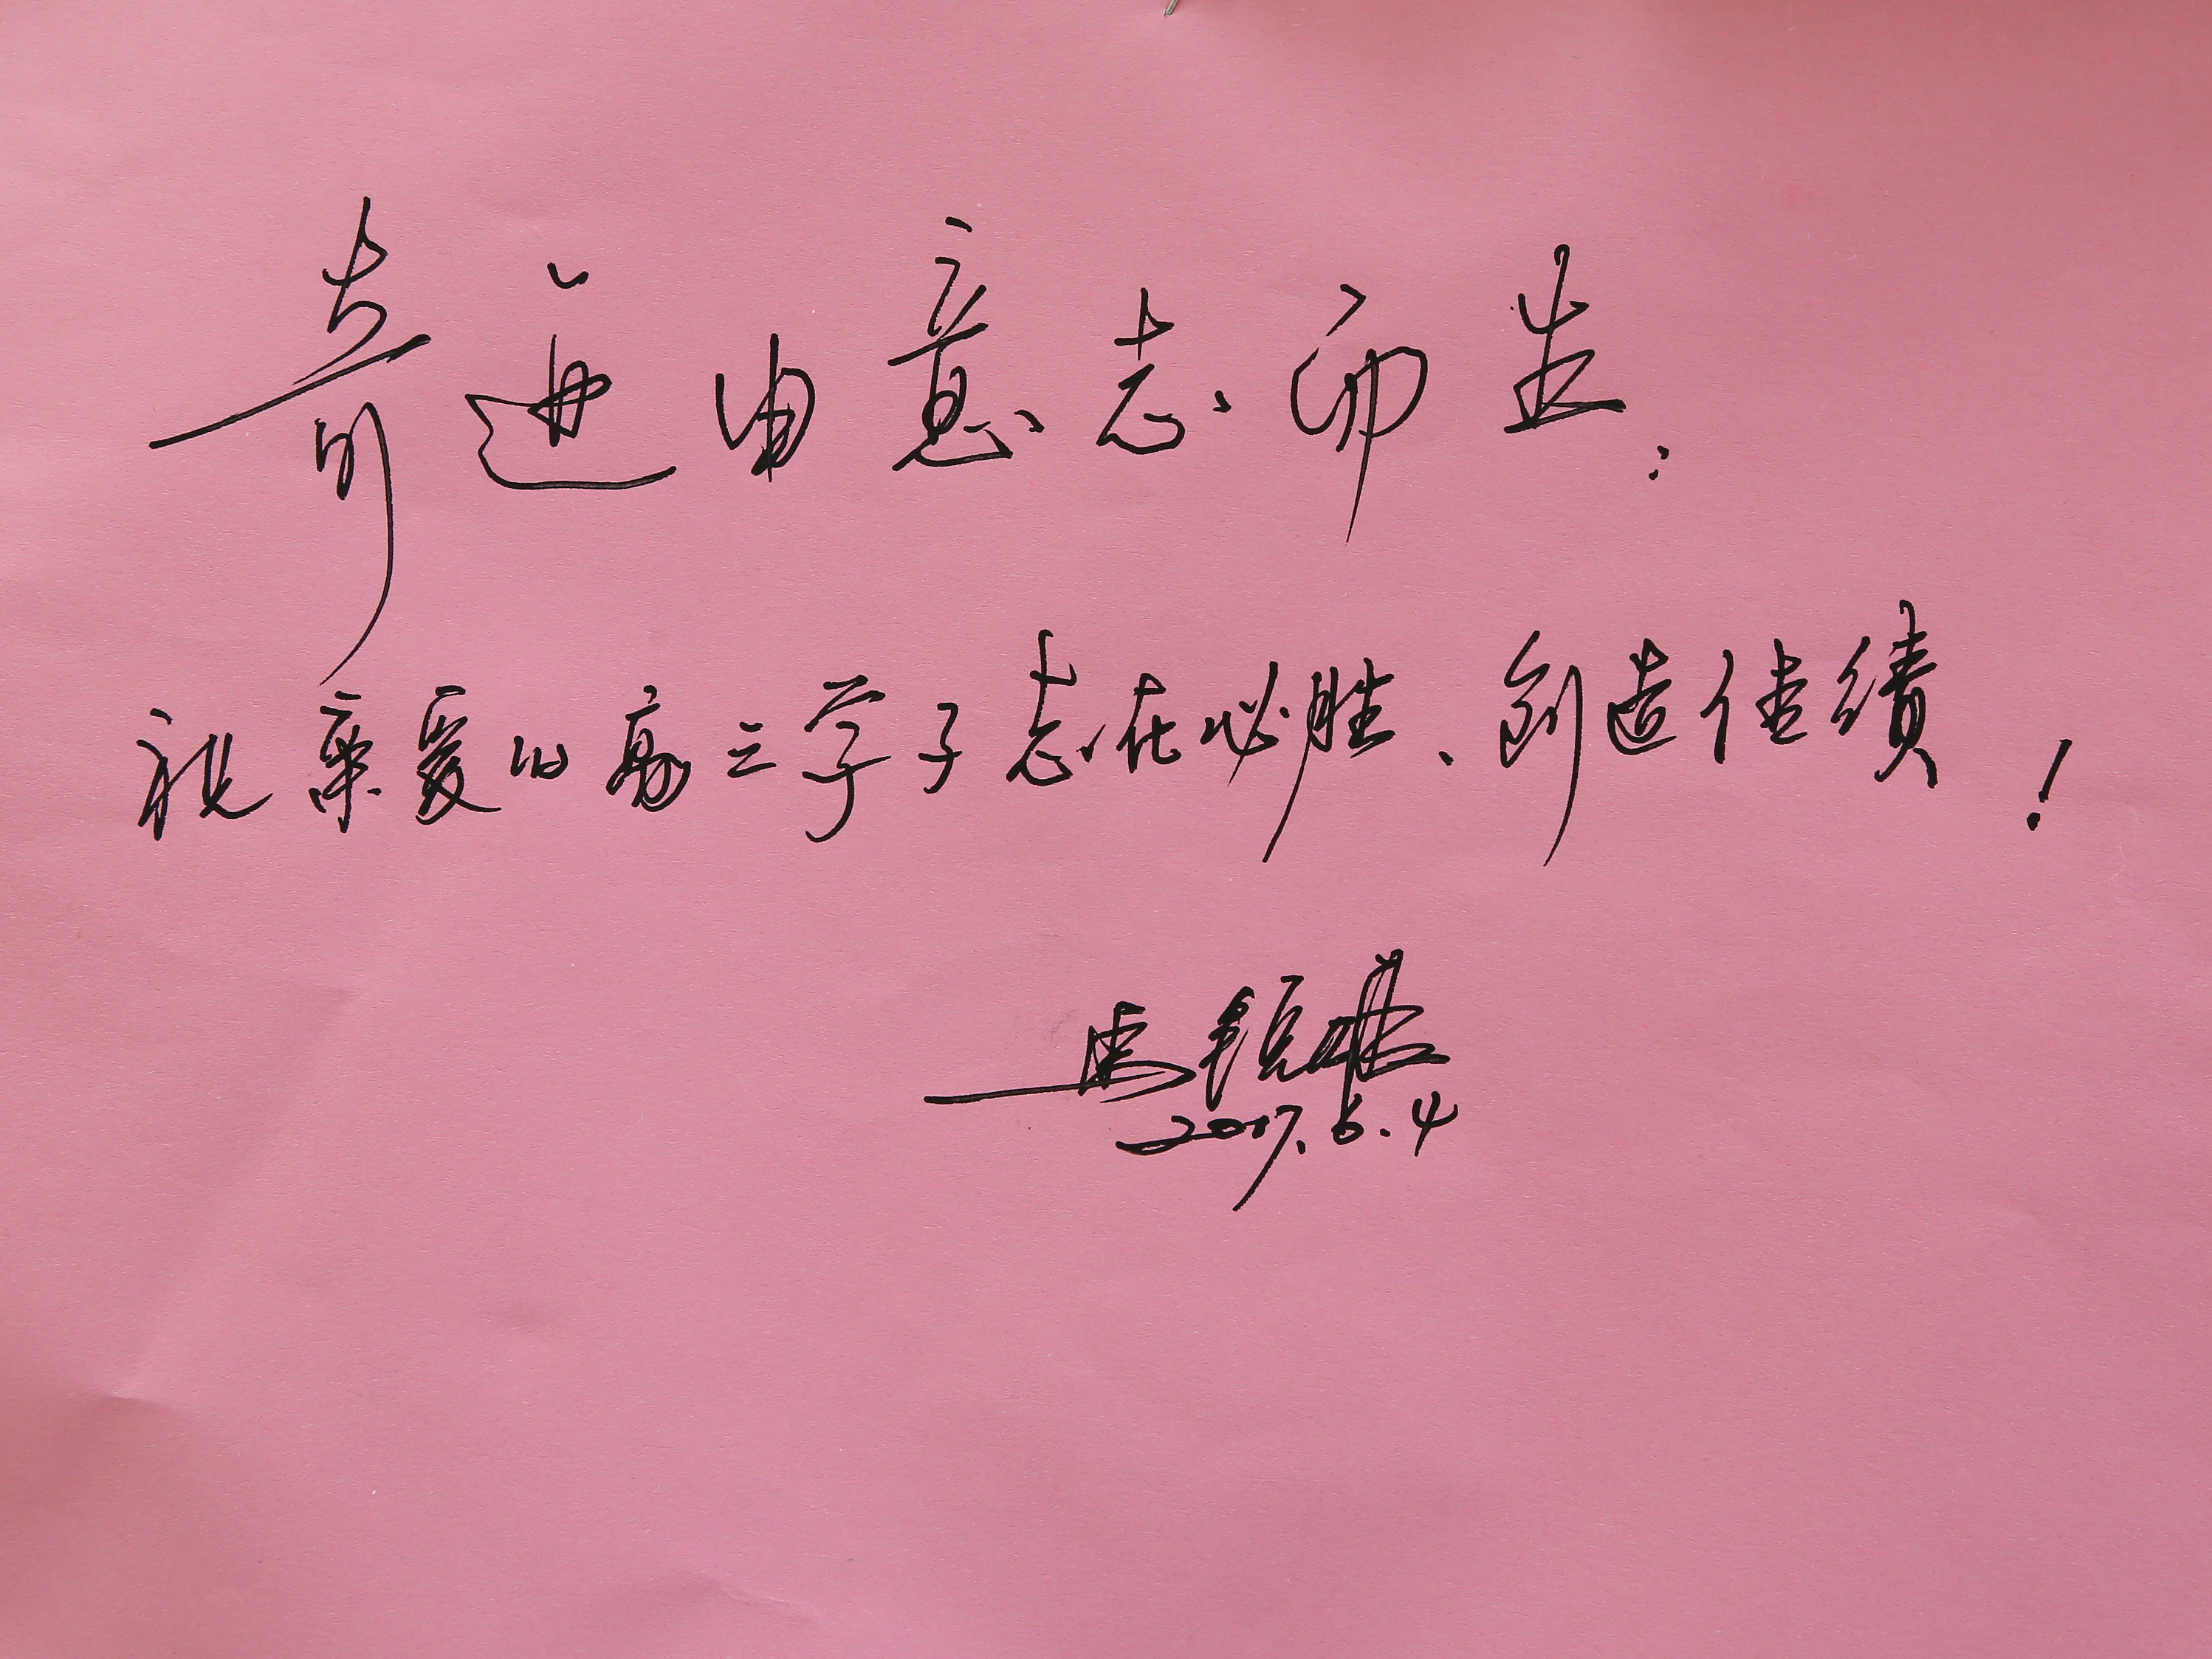 奇迹由意志而生：
祝亲爱的高三学子志在必胜、创造佳绩！
2017.6.4